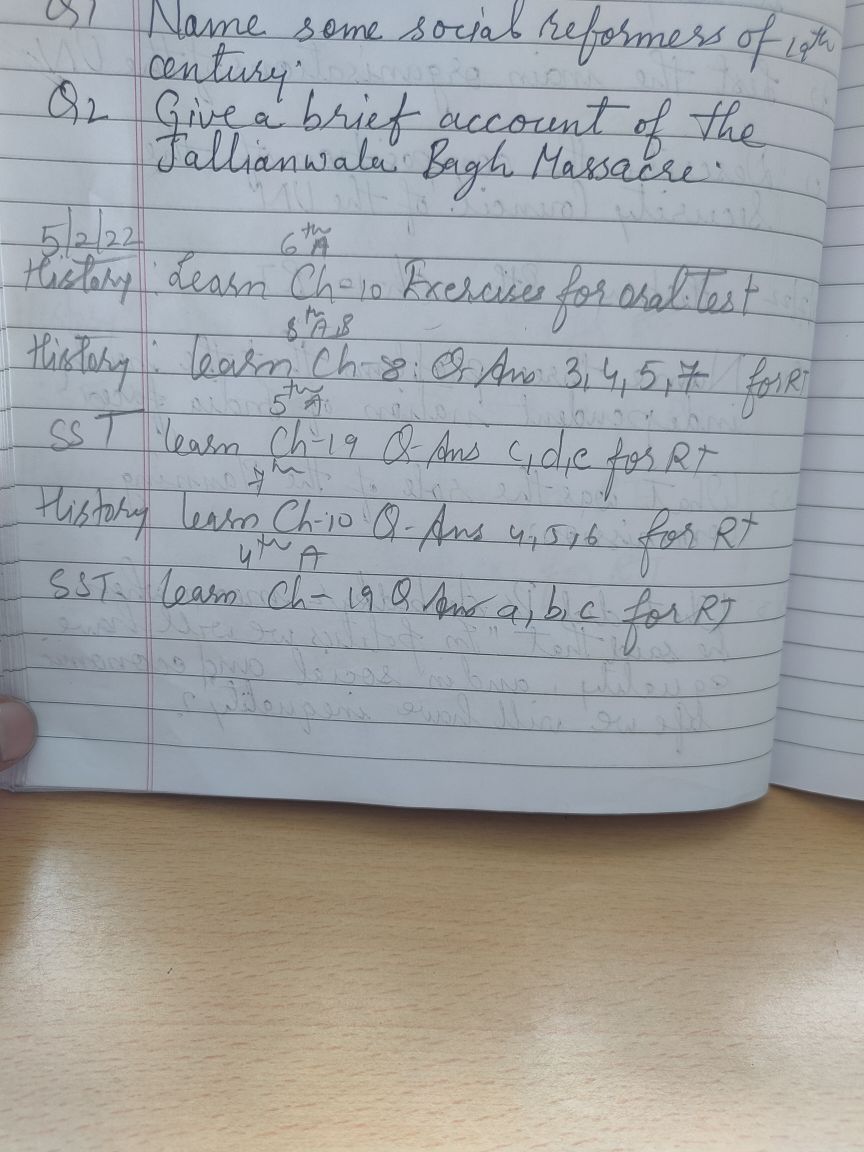 Q1 Name some social reformers of 19th
century.
Q2 Give a brief account of the
Jallianwala Bagh Massacre.
5/2/22 6th A
History: Learn Ch-10 Exercises for oral test
8th A,B
History: learn Ch-8: Q-Ans 3,4,5,7 for RT
5th A
SST learn Ch-19 Q-Ans c,d,e for RT
7th
History learn Ch-10 Q-Ans 4,5,6 for RT
4th A
SST: learn Ch-19 Q Ans a,b,c for RT